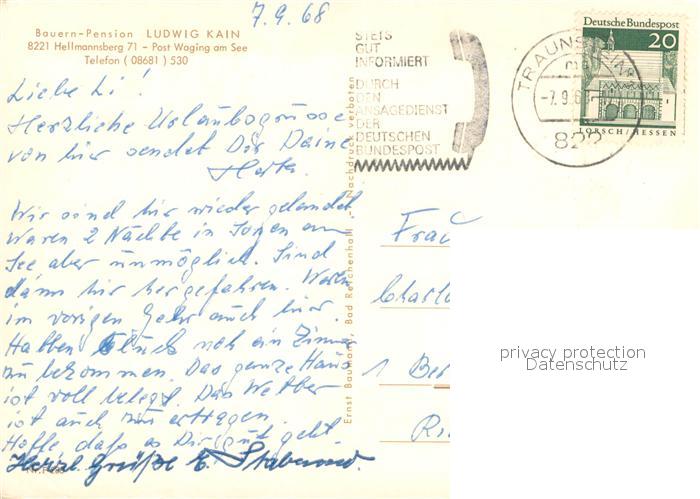 7.9.68
Bauern-Pension LUDWIG KAIN
8221 Hellmannsberg 71 – Post Waging am See
Telefon ( 08681 ) 530
STETS
GUT
INFORMIERT
DURCH
DEN
ANSAGEDIENST
DER
DEUTSCHEN
BUNDESPOST
TRAUNSTEIN
-7.9.68
822
Deutsche Bundespost
20
LORSCH/HESSEN
Liebe Li!
Herzliche Urlaubsgrüsse
von hier sendet Dir Deine
Herta.
Wir sind hier wieder gelandet
Waren 2 Nächte in am
See aber unmöglich. Sind
dann hier hergefahren. Waren
im vorigen Jahr auch hier.
Hatten Glück noch ein Zimmer
zu bekommen. Das ganze Haus
ist voll belegt. Das Wetter
ist auch zu ertragen.
Hoffe, daß es Dir gut geht.
Herzl Grüße E.
Ernst Baumann, Bad Reichenhall - Nachdruck verboten
Frau
Charlo
1 Ber
privacy protection
Datenschutz